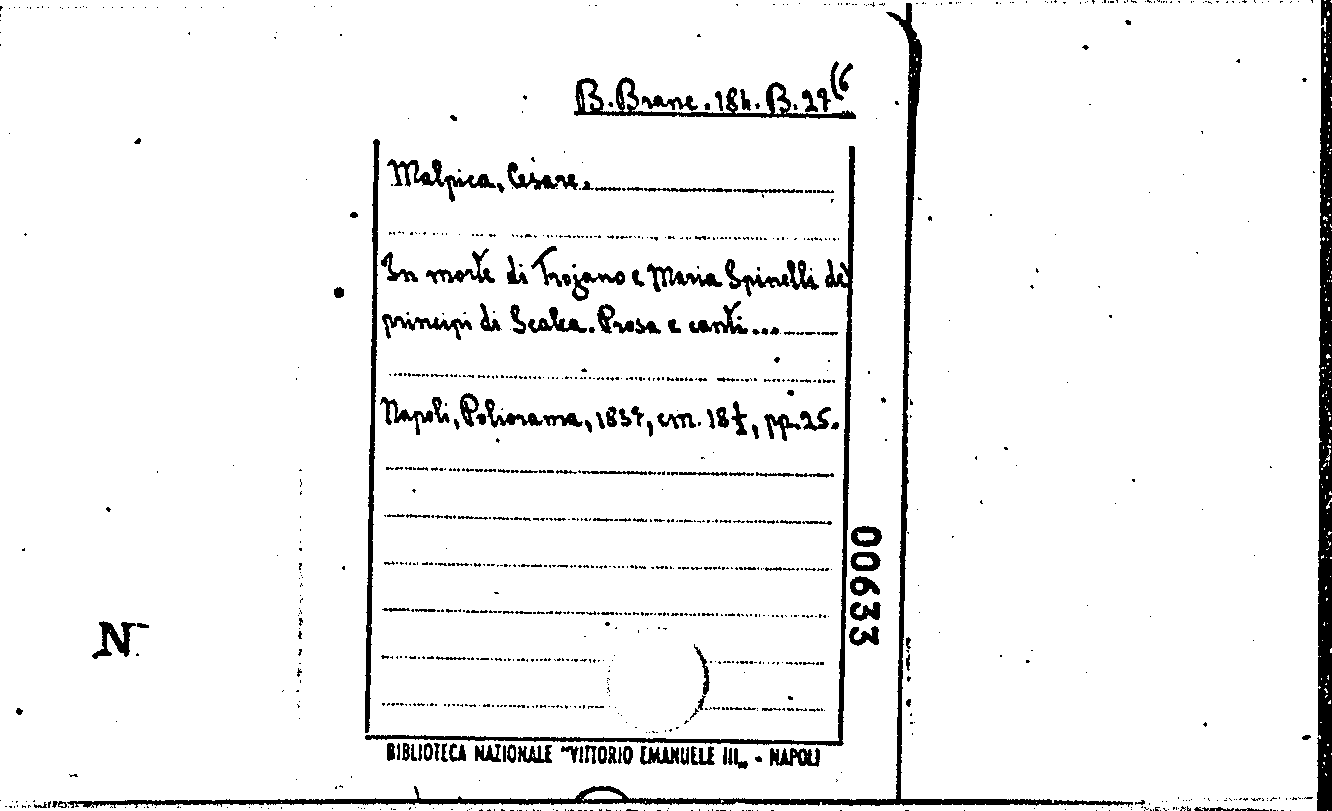 B. Branc. 184. B. 27(6
Malpica, Cesare.
In morte di Trojano e Maria Spinelli de'
principi di Scalea. Prosa e canti...
Napoli, Poliorama, 1837, cm. 18½, pp. 25.
00633
N
BIBLIOTECA NAZIONALE "VITTORIO EMANUELE III„ - NAPOLI